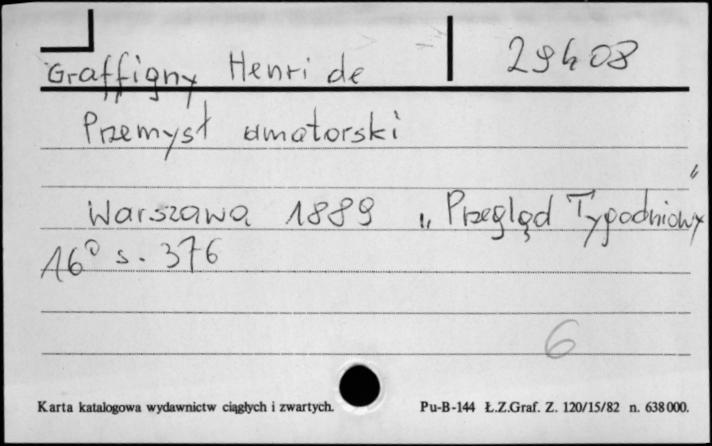 Graffigny Henri de 29408
Przemysł amatorski
Warszawa 1889 „Przegląd Tygodniowy"
16° s. 376
6
Karta katalogowa wydawnictw ciągłych i zwartych. Pu-B-144 Ł.Z.Graf. Z. 120/15/82 n. 638000.